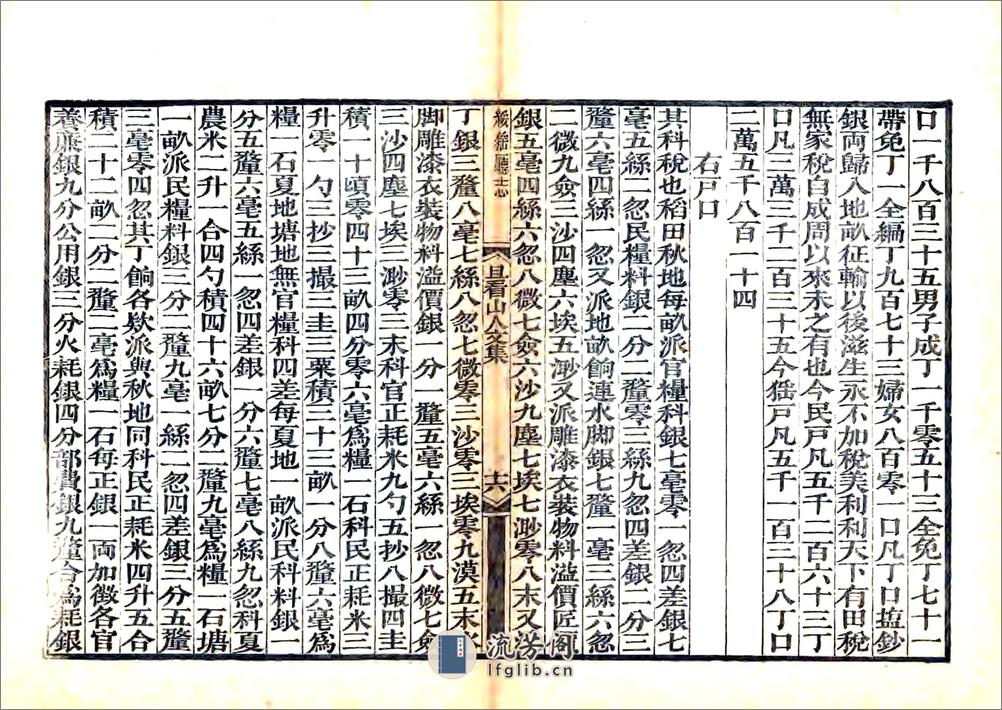 口一千八百三十五男子成丁一千零五十三全免丁七十一
帶免丁一全編丁九百七十三婦女八百零一口凡丁口塩鈔
銀両歸入地畝征輸以後滋生永不加稅美利利天下有田稅
無家稅自成周以來未之有也今民戸凡五千二百六十三丁
口凡三萬三千二百三十五今徭戸凡五千一百三十八丁口
二萬五千八百一十四
右戸口
其科稅也稻田秋地每畝派官糧科銀七毫零一忽四差銀七
毫五絲二忽民糧料銀二分二釐零三絲九忽四差銀二分三
釐六毫四絲一忽又派地畝餉連水脚銀七釐一毫三絲六忽
二微九僉三沙四塵六埃五渺又派雕漆衣裝物料溢價匠
銀五毫四絲六忽八微七僉六沙九塵七埃七渺零八末又
綏猺廳志
且看山人文集
十六
丁銀三釐八毫七絲八忽七微零三沙零三埃零九漠五末
脚雕漆衣裝物料溢價銀一分一釐五毫六絲一忽八微七僉
三沙四塵七埃三渺零三末科官正耗米九勺五抄八撮四圭
積一十頃零四十三畝四分零六毫爲糧一石科民正耗米三
升零一勺三抄三撮三圭三粟積三十三畝一分八釐六毫爲
糧一石夏地塘地無官糧科四差每夏地一畝派民科料銀一
分五釐六毫五絲一忽四差銀一分六釐七毫八絲九忽科夏
農米二升一合四勺積四十六畝七分二釐九毫爲糧一石塘
一畝派民糧料銀三分二釐九毫一絲二忽四差銀三分五釐
三毫零四忽其丁餉各欵派與秋地同科民正耗米四升五合
積二十二畝二分二釐二毫爲糧一石每正銀一両加徵各官
養廉銀九分公用銀三分火耗銀四分部費銀九釐合爲耗銀
流芳阁
lfglib.cn